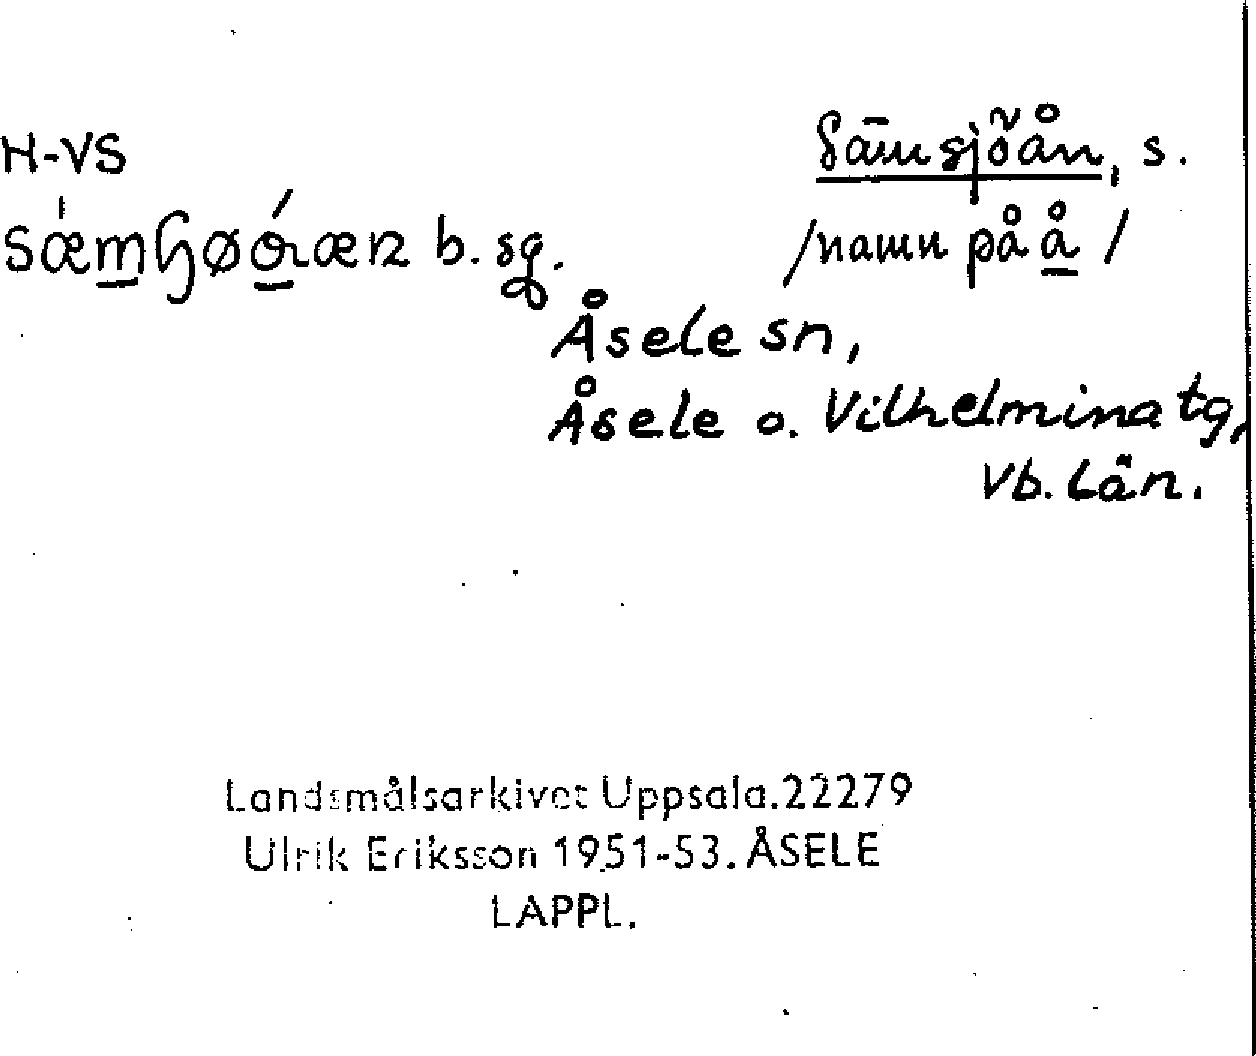 H-VS
Sämsjöån, s.
b. sg.
/namn på å/
Åsele sn,
Åsele o. Vilhelmina tg,
Vb. län.
Landsmålsarkivet Uppsala.22279
Ulrik Eriksson 1951-53. ÅSELE
LAPPL.